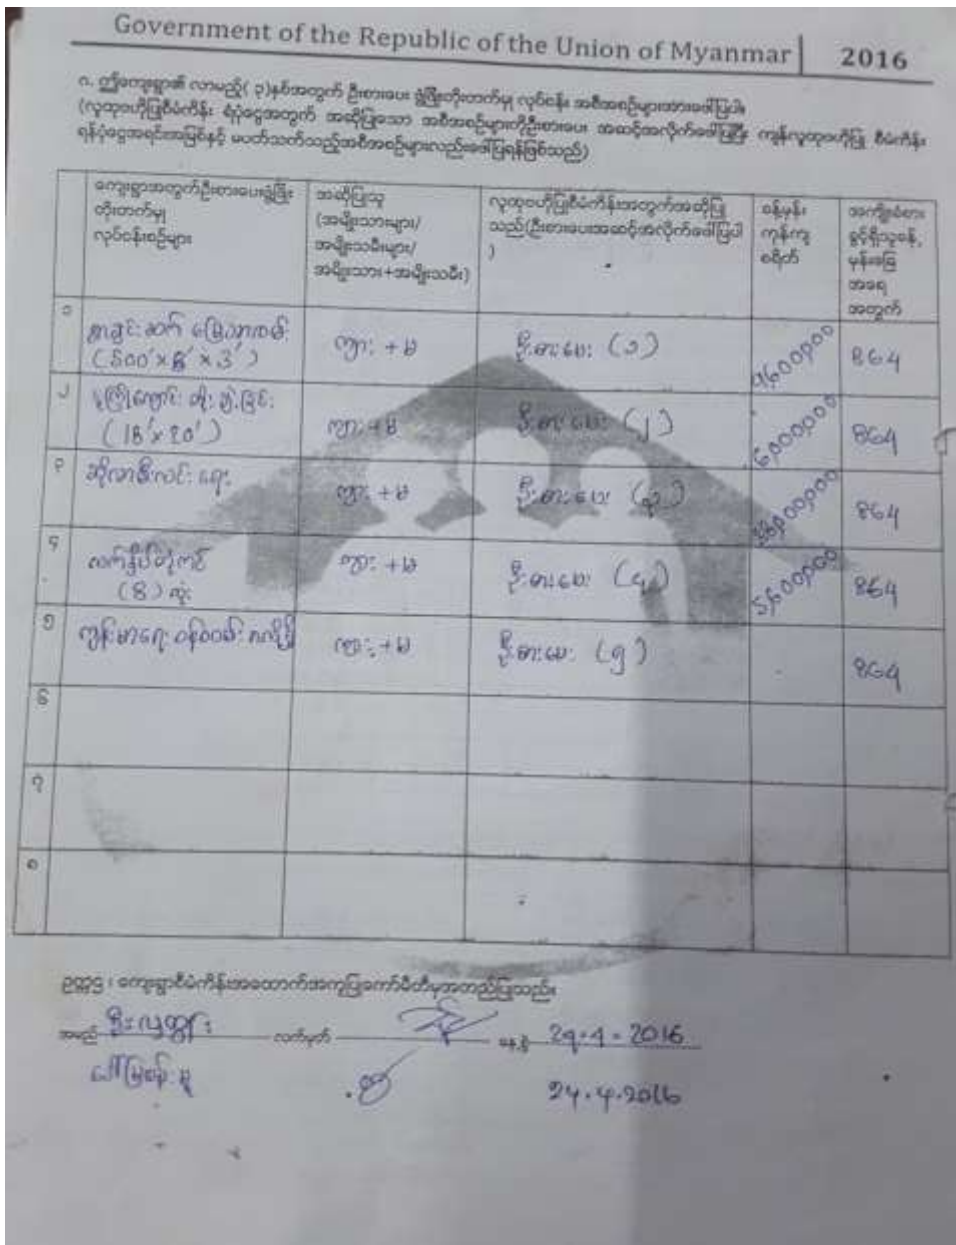 Government of the Republic of the Union of Myanmar | 2016
၈. ဤကျေးရွာ၏ လာမည့်( ၃)နှစ်အတွက် ဦးစားပေး ဖွံ့ဖြိုးတိုးတက်မှု လုပ်ငန်း အစီအစဉ်များအားဖေါ်ပြပါ။
(လူထုဗဟိုပြုစီမံကိန်း ရံပုံငွေအတွက် အဆိုပြုသော အစီအစဉ်များကိုဦးစားပေး အဆင့်အလိုက်ဖေါ်ပြပြီး ကျန်လူထုဗဟိုပြု စီမံကိန်း
ရန်ပုံငွေအရင်းအမြစ်နှင့် မပတ်သက်သည့်အစီအစဉ်များလည်းဖေါ်ပြရန်ဖြစ်သည်)
ကျေးရွာအတွက်ဦးစားပေးဖွံ့ဖြိုး
တိုးတက်မှု
လုပ်ငန်းစဉ်များ
အဆိုပြုသူ
(အမျိုးသားများ/
အမျိုးသမီးများ/
အမျိုးသား+အမျိုးသမီး)
လူထုဗဟိုပြုစီမံကိန်းအတွက်အဆိုပြု
သည်(ဦးစားပေးအဆင့်အလိုက်ဖေါ်ပြပါ
)
ခန့်မှန်း
ကုန်ကျ
စရိတ်
အကျိုးခံစား
ခွင့်ရှိသူခန့်
မှန်းခြေ
အရေ
အတွက်
၁
ရွာချင်းဆက် မြေသားလမ်း
(500' x 8' x 3')
ကျား + မ
ဦးစားပေး (၁)
864
၂
မူကြိုကျောင်း တိုးချဲ့ခြင်း
(18' x 20')
ကျား + မ
ဦးစားပေး (၂)
6,000,000
864
၃
ဆိုလာမီးလင်းရေး
ကျား + မ
ဦးစားပေး (၃)
864
၄
လက်နှိပ်တုံကင်
(8) လုံး
ကျား + မ
ဦးစားပေး (၄)
5,600,000
864
၅
ကျန်းမာရေး ဝန်ထမ်း
ကျား + မ
ဦးစားပေး (၅)
864
၆
၇
၈
ဥက္ကဌ ၊ ကျေးရွာစီမံကိန်းအထောက်အကူပြုကော်မီတီမှအတည်ပြုသည်။
အမည် ဦးလှထွန်း လက်မှတ် နေ့စွဲ 29.4.2016
ဒေါ်မြစန်းမူ
24.4.2016